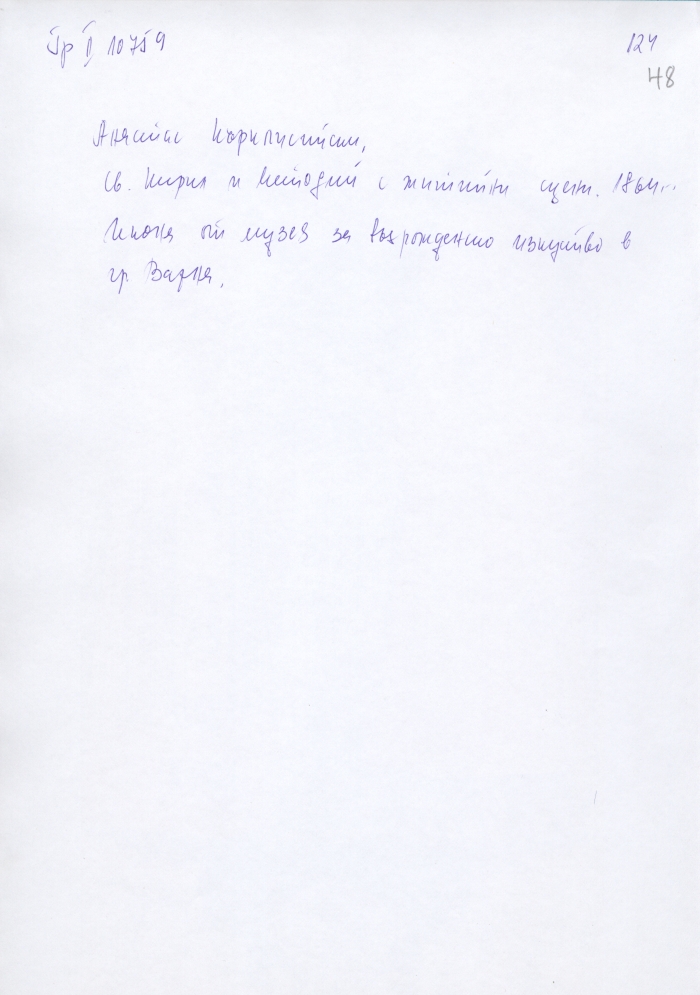 Гр II 10759
124
48
Анастас
Св. Кирил и Методий с житийни сцени. 1864 г.
Икона от музея за възрожденско изкуство в
гр. Варна.